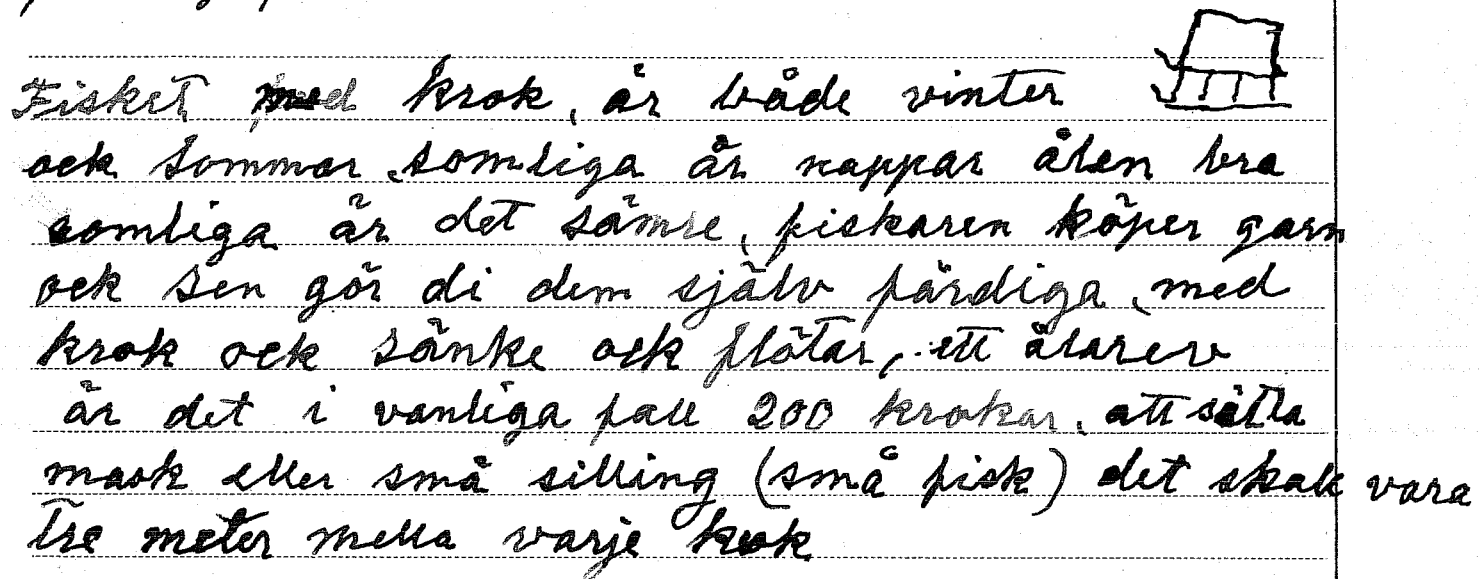 Fisket med krok, är både vinter
ock sommar, somliga år nappar ålen bra
somliga år det sämre, fiskaren köper garn
ock sen gör di dem själv färdiga, med
krok ock sänke ock flötar, ett ålarev
är det i vanliga fall 200 krokar, att sätta
mask eller små silling (små fisk) det skall vara
tre meter mella varje krok